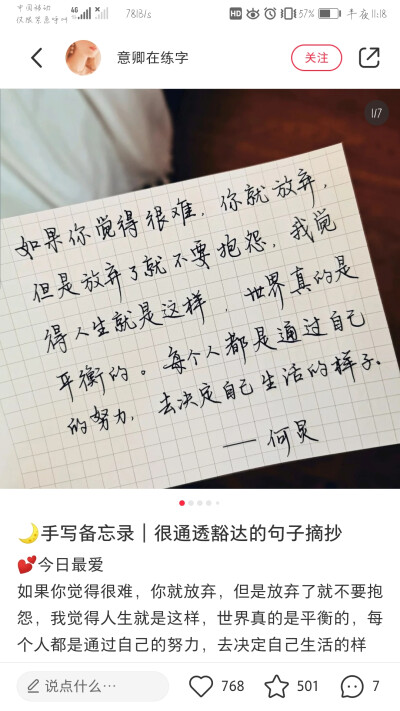 中国移动
仅限紧急呼叫
4G
781B/s
HD
57%
半夜11:18
意卿在练字
关注
1/7
如果你觉得很难，你就放弃，
但是放弃了就不要抱怨，我觉
得人生就是这样，世界真的是
平衡的。每个人都是通过自己
的努力，去决定自己生活的样子。
——何炅
🌙手写备忘录｜很通透豁达的句子摘抄
💕今日最爱
如果你觉得很难，你就放弃，但是放弃了就不要抱
怨，我觉得人生就是这样，世界真的是平衡的，每
个人都是通过自己的努力，去决定自己生活的样
说点什么…
768
501
7